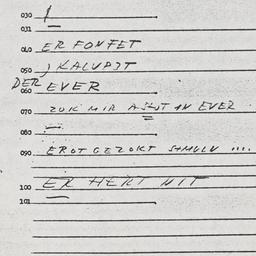 030
031
040 ER FONFET
050 ) KALUPJT
DER EVER
060
070 ZOK MIR AZ IN EVER
080
090 EROT GEZOKT ....
100 ER HERT NIT
101